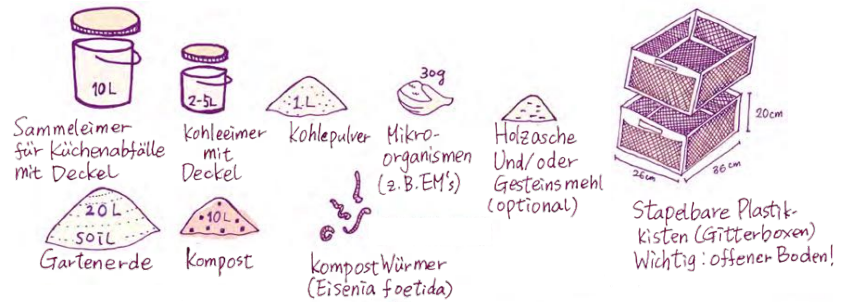 10L
Sammeleimer
für Küchenabfälle
mit Deckel
2-5L
Kohleeimer
mit
Deckel
1L
Kohlepulver
30g
Mikro-
organismen
(z.B.EM's)
Holzasche
Und/oder
Gesteinsmehl
(optional)
20cm
26cm
36cm
Stapelbare Plastik-
kisten (Gitterboxen)
Wichtig: offener Boden!
20L
SOIL
Gartenerde
10L
Kompost
Kompost Würmer
(Eisenia foetida)